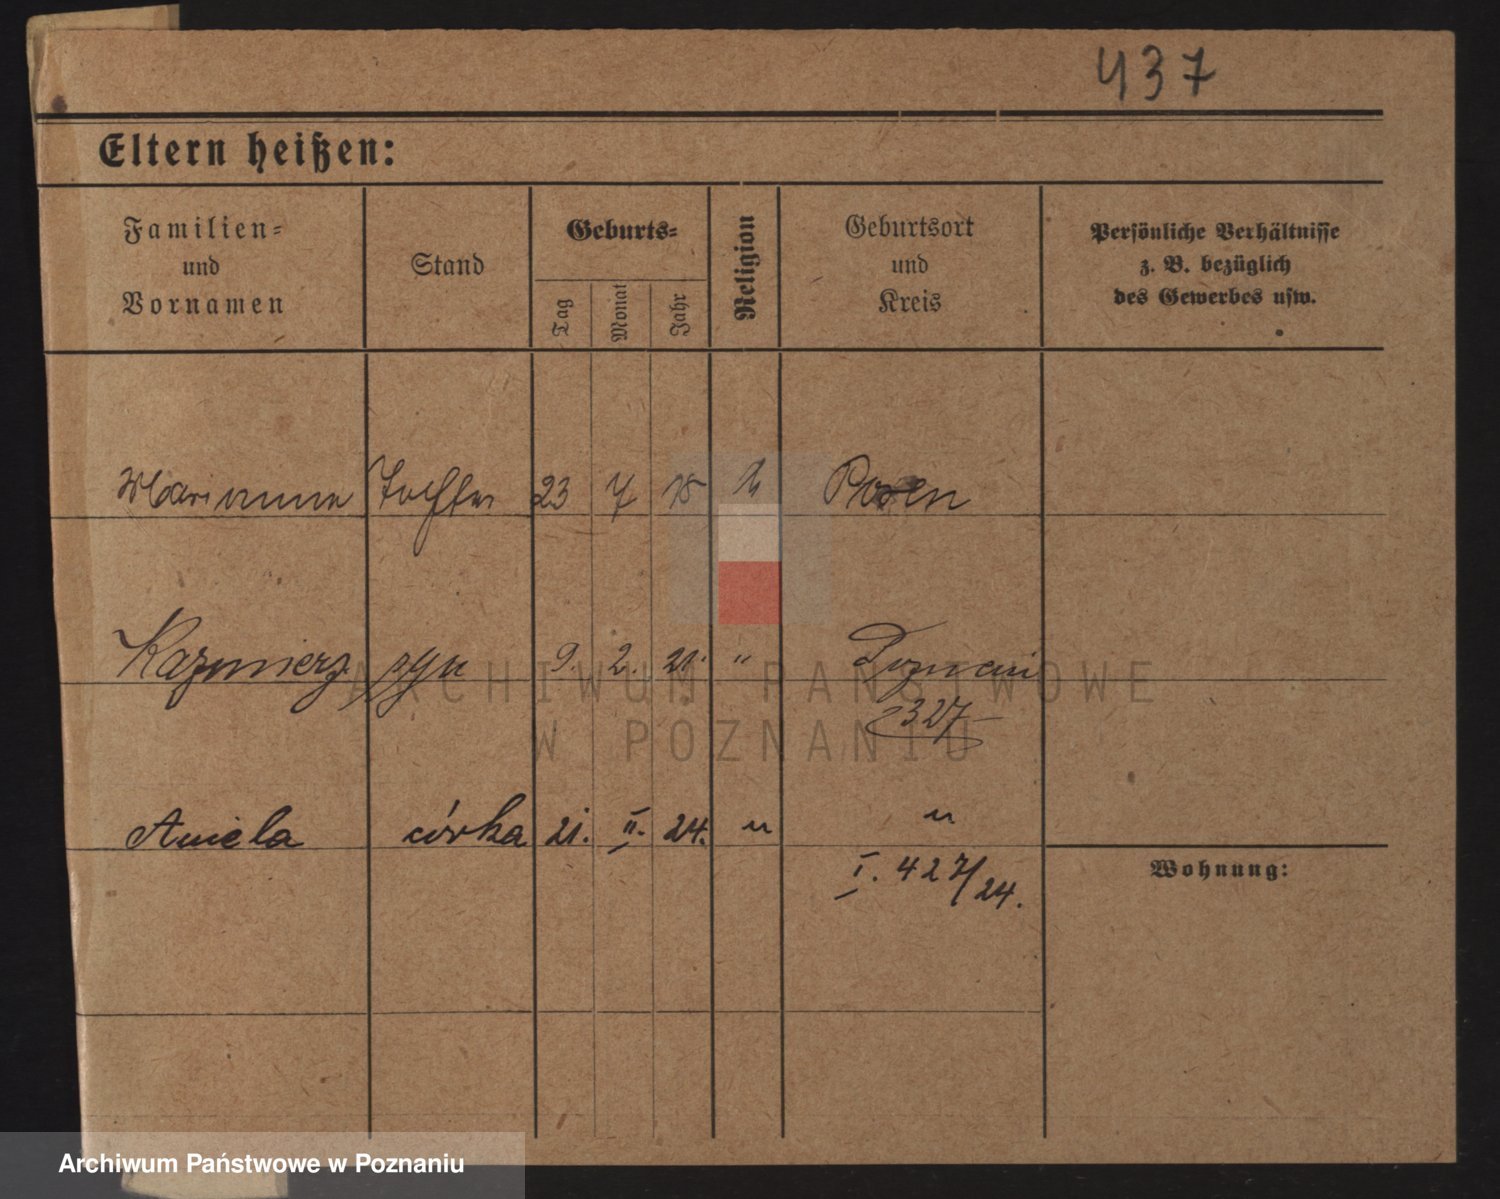 437
Eltern heißen:
Familien- und Vornamen
Stand
Geburts-
Tag
Monat
Jahr
Religion
Geburtsort und Kreis
Persönliche Verhältnisse z. B. bezüglich des Gewerbes usw.
Marianna Tochter 23 7 18 k Posen
Kazimierz syn 9. 2. 21. " Poznań
2327
Aniela córka 21. II. 24. " "
I. 427/24.
Wohnung:
ARCHIWUM PAŃSTWOWE
W POZNANIU
Archiwum Państwowe w Poznaniu